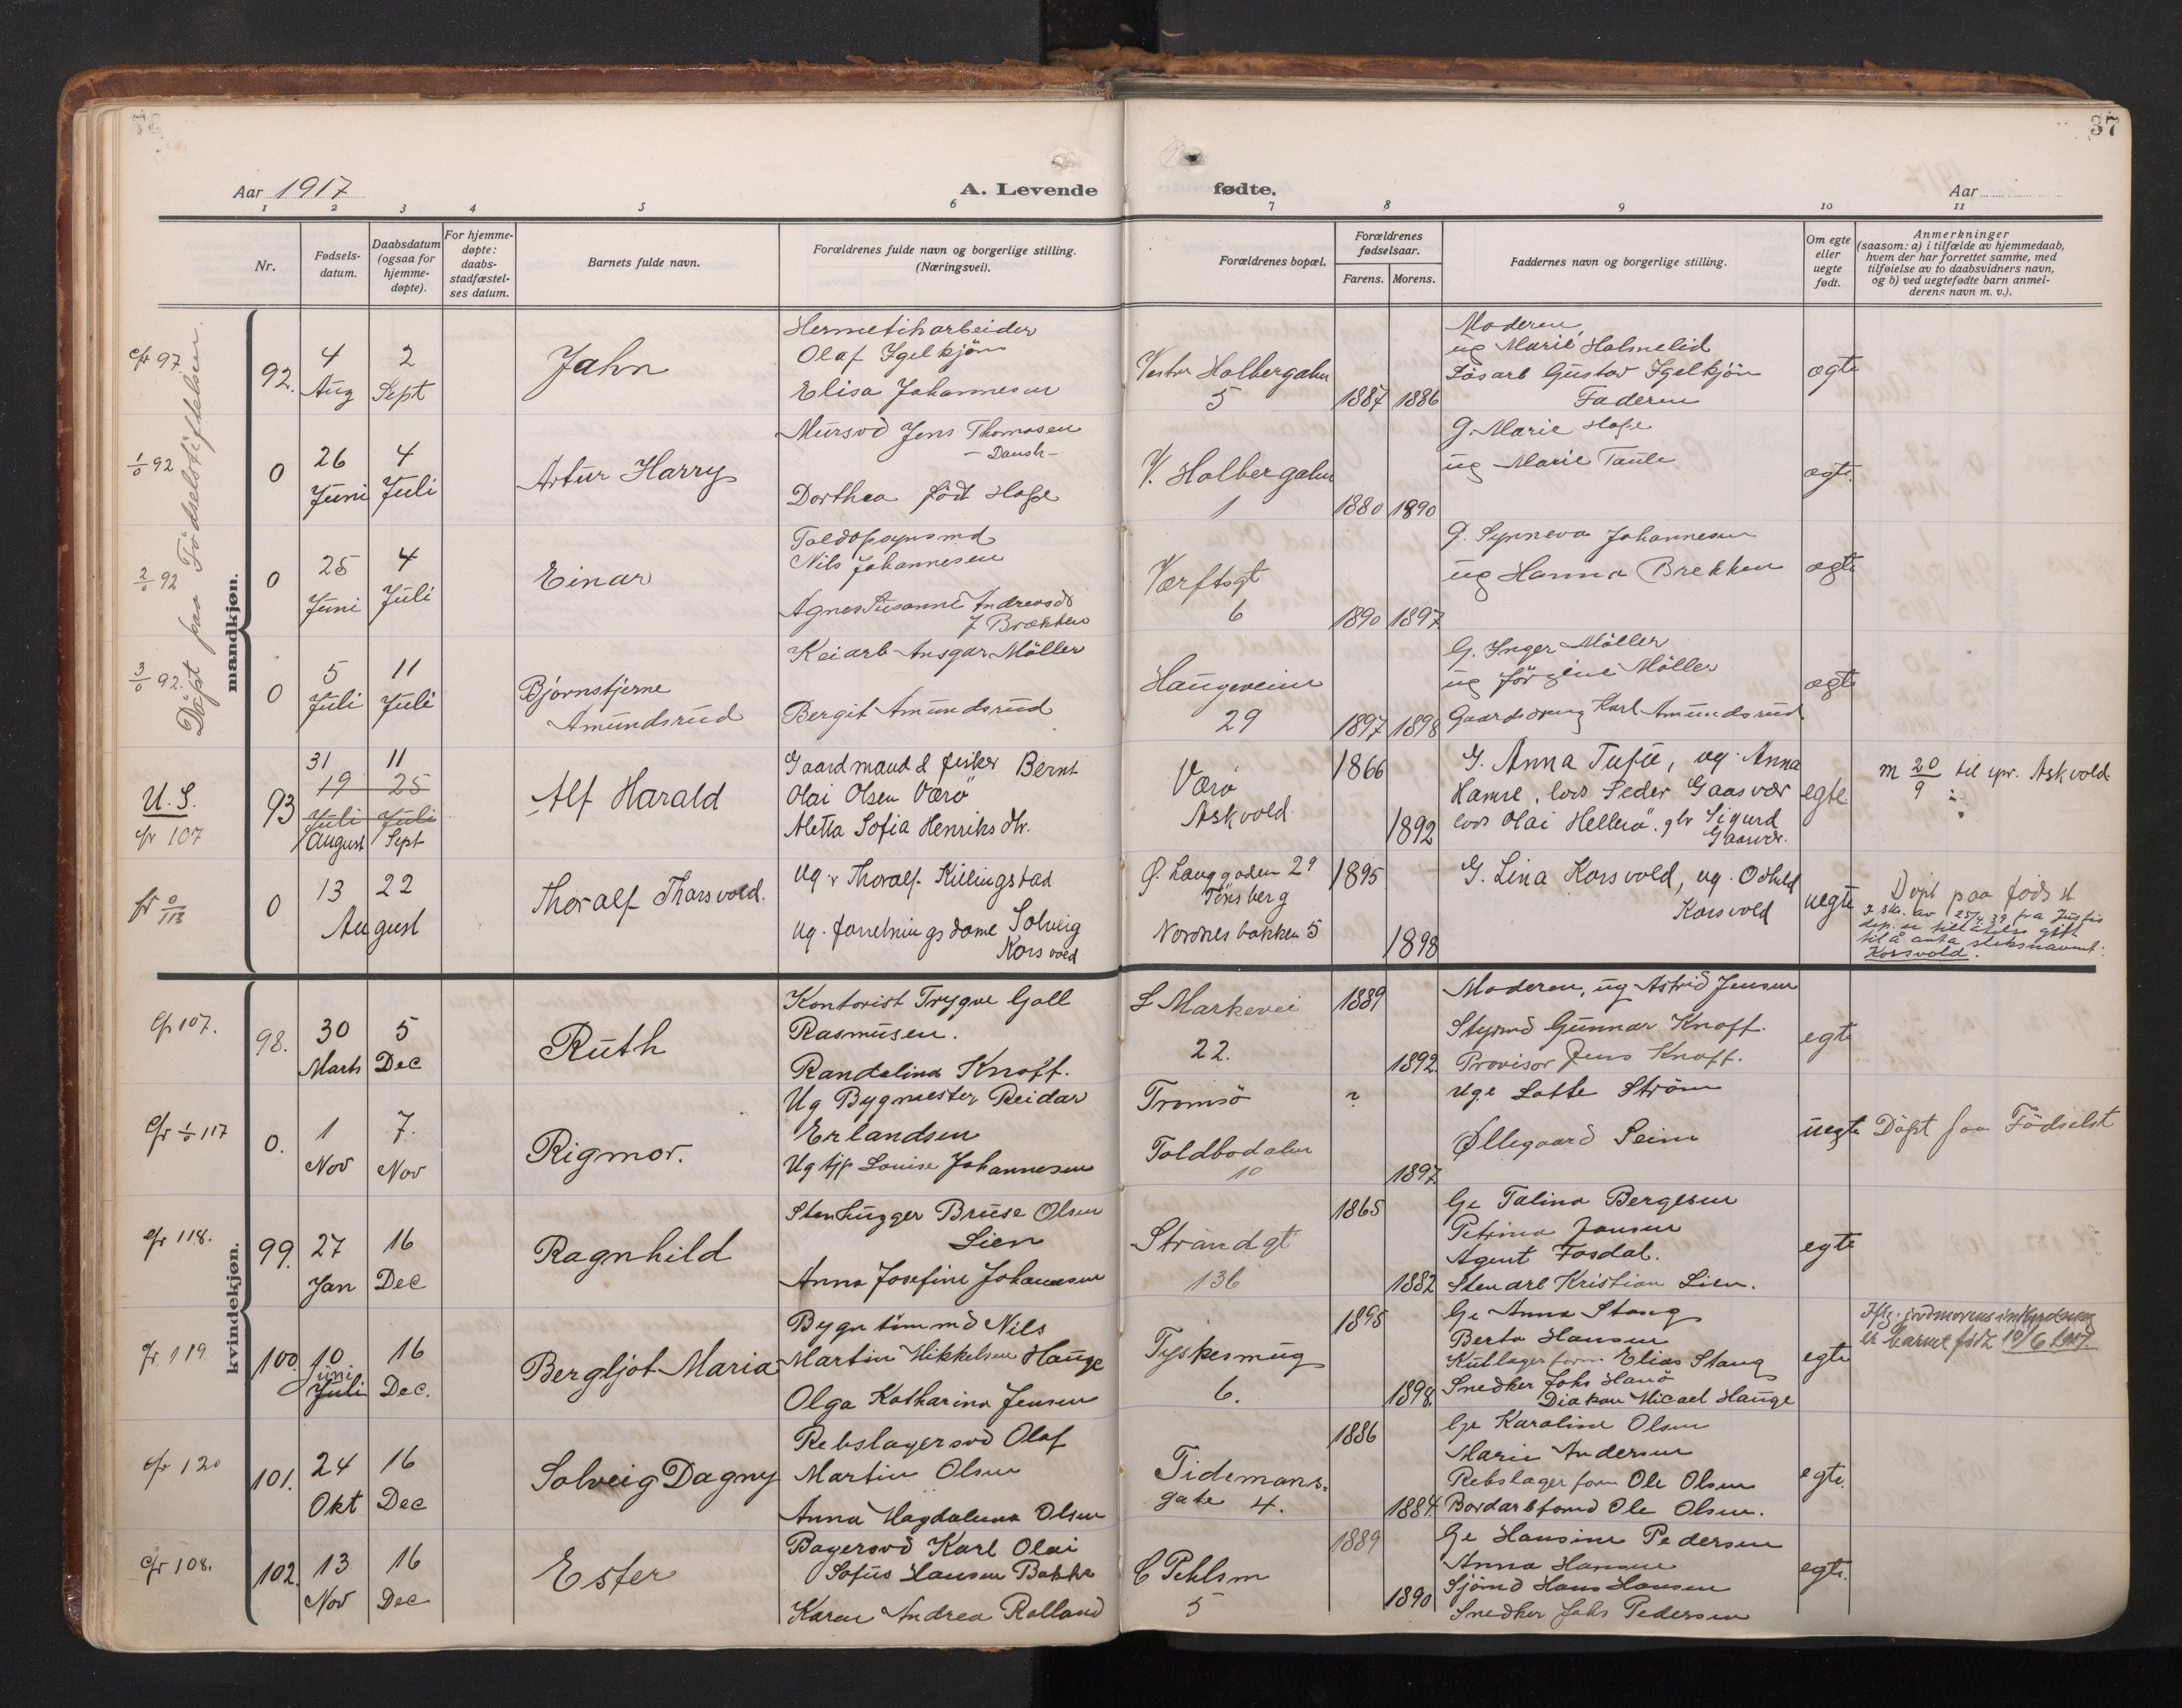 37
Aar 1917
A. Levende fødte.
Aar
1 2 3 4 5 6 7 8 9 10 11
Nr.
Fødsels-
datum.
Daabsdatum
(ogsaa for
hjemme-
døpte).
For hjemme-
døpte:
daabs-
stadfæstel-
ses datum.
Barnets fulde navn.
Forældrenes fulde navn og borgerlige stilling.
(Næringsvei).
Forældrenes bopæl.
Forældrenes
fødselsaar.
Farens. Morens.
Faddernes navn og borgerlige stilling.
Om egte
eller
uegte
født.
Anmerkninger
(saasom: a) i tilfælde av hjemmedaab,
hvem der har forrettet samme, med
tilføielse av to daabsvidners navn,
og b) ved uegtefødte barn anmel-
derens navn m. v.).
mandkjøn.
Döpt paa Födselsstiftelsen
cfr 97.
92.
4
Aug
2
Sept
Jahn
Hermetikarbeider
Olaf Igelkjøn
Elisa Johannesen
Vestre Holbergalm
5
1887 1886
Moderen,
ug Marie Holmelid
Løsarb Gustav Igelkjön
Faderen
egte
1/0 92
0
26
Juni
4
Juli
Artur Harry
Mursvd Jens Thomasen
- Dansk -
Dorthea född Hope
V. Holbergalm
1
1880 1890
G. Marie Hope
ug Marie Taule
egte.
2/0 92
0
25
Juni
4
Juli
Einar
Toldopsynsmd
Nils Johannesen
Agnes Susanne Andreasdr
f Brækken
Værftsgt
6
1890 1897
G. Synneva Johannesen
ug Hanna Brekken
egte
3/0 92.
0
5
Juli
11
Juli
Bjørnstjerne
Amundsrud
Keiarb Ansgar Möller
Bergit Amundsrud
Haugeveien
29
1897 1898
G. Inger Möller
ug Jörgine Möller
Gaardsdreng Karl Amundsrud
egte
U. S.
cfr 107
93
31
19
Juli
August
11
25
Juli
Sept
Alf Harald
Gaardmand & fisker Bernt
Olai Olsen Værö
Aletta Sofia Henriksdtr.
Værö
Askvold.
1866
1892
G. Anna Tufte, ug. Anna
Hamre, lods Peder Gaasvær
lods Olai Hellerö. glr Sigurd
Gaasvær.
egte
m 20/9 til spr. Askvold.
cfr 0/113
0
13 22
August
Thoralf Thorsvold.
Ug. Thoralf Killingstad
ug. forretningsdame Solveig
Korsvold
Ø. Langgaden 29
Tönsberg
Nordnesbakken 5
1895
1898
G. Lina Korsvold, ug. Odhild
Korsvold
uegte
Döpt paa föds st.
I skr. av 25/4 39 fra Justis
dep. er tillatelse gitt
til å anta slektsnavnet:
Korsvold.
kvindekjøn.
Cfr 107.
98.
30
Marts
5
Dec
Ruth
Kontorist Trygve Gall
Rasmusen.
Randelina Knoff.
L Markevei
22.
1889
1892.
Moderen, ug Astrid Jensen
Styrmd Gunnar Knoff.
Provisor Jens Knoff.
egte
Cfr 1/0 117
0.
1
Nov
7.
Nov
Rigmor.
Ug Bygmester Reidar
Erlandsen
Ug tjp Louise Johannesen
Tromsö
Toldbodalm
10
?
1897
Uge Lotte Ström
Øllegaard Seim
uegte
Döpt paa Födselst
cfr 118.
99.
27
Jan
16
Dec
Ragnhild
Stenhugger Bruse Olsen
Lien
Anna Josefine Johannesen
Strandgt
136
1865
1882
Ge Talina Bergesen
Petrina Jansen
Agent Fosdal.
Stenarb Kristian Lien.
egte
cfr 119
100.
10
Juni
Juli
16
Dec.
Bergljot Maria
Bygn tömmd Nils
Martin Mikkelsen Hauge
Olga Katharina Jensen
Tyskesmug
6.
1895
1898.
Ge Anna Stang
Berta Hansen
Kullagerform Elias Stang
Snedker Johs Hanö
Diakon Micael Hauge
egte
Iflg. jordmorens innberetning
er barnet født 10/6 1917.
cfr 120
101.
24
Okt
16
Dec
Solveig Dagny
Rebslagersvd Olaf
Martin Olsen
Anna Magdalena Olsen
Tidemans-
gate 4.
1886
1884.
Ge Karoline Olsen
Marie Andersen
Rebslagerform Ole Olsen
Bordarbformd Ole Olsen.
egte.
Cfr 108.
102.
13
Nov
16
Dec
Ester
Bagersvd Karl Olai
Sofus Hansen Bakke
Karen Andrea Rolland
C Pehlsm
5
1889
1890
Ge Hansine Pedersen
Anna Hansen
Sjömd Hans Hansen
Snedker Johs Pedersen
egte.